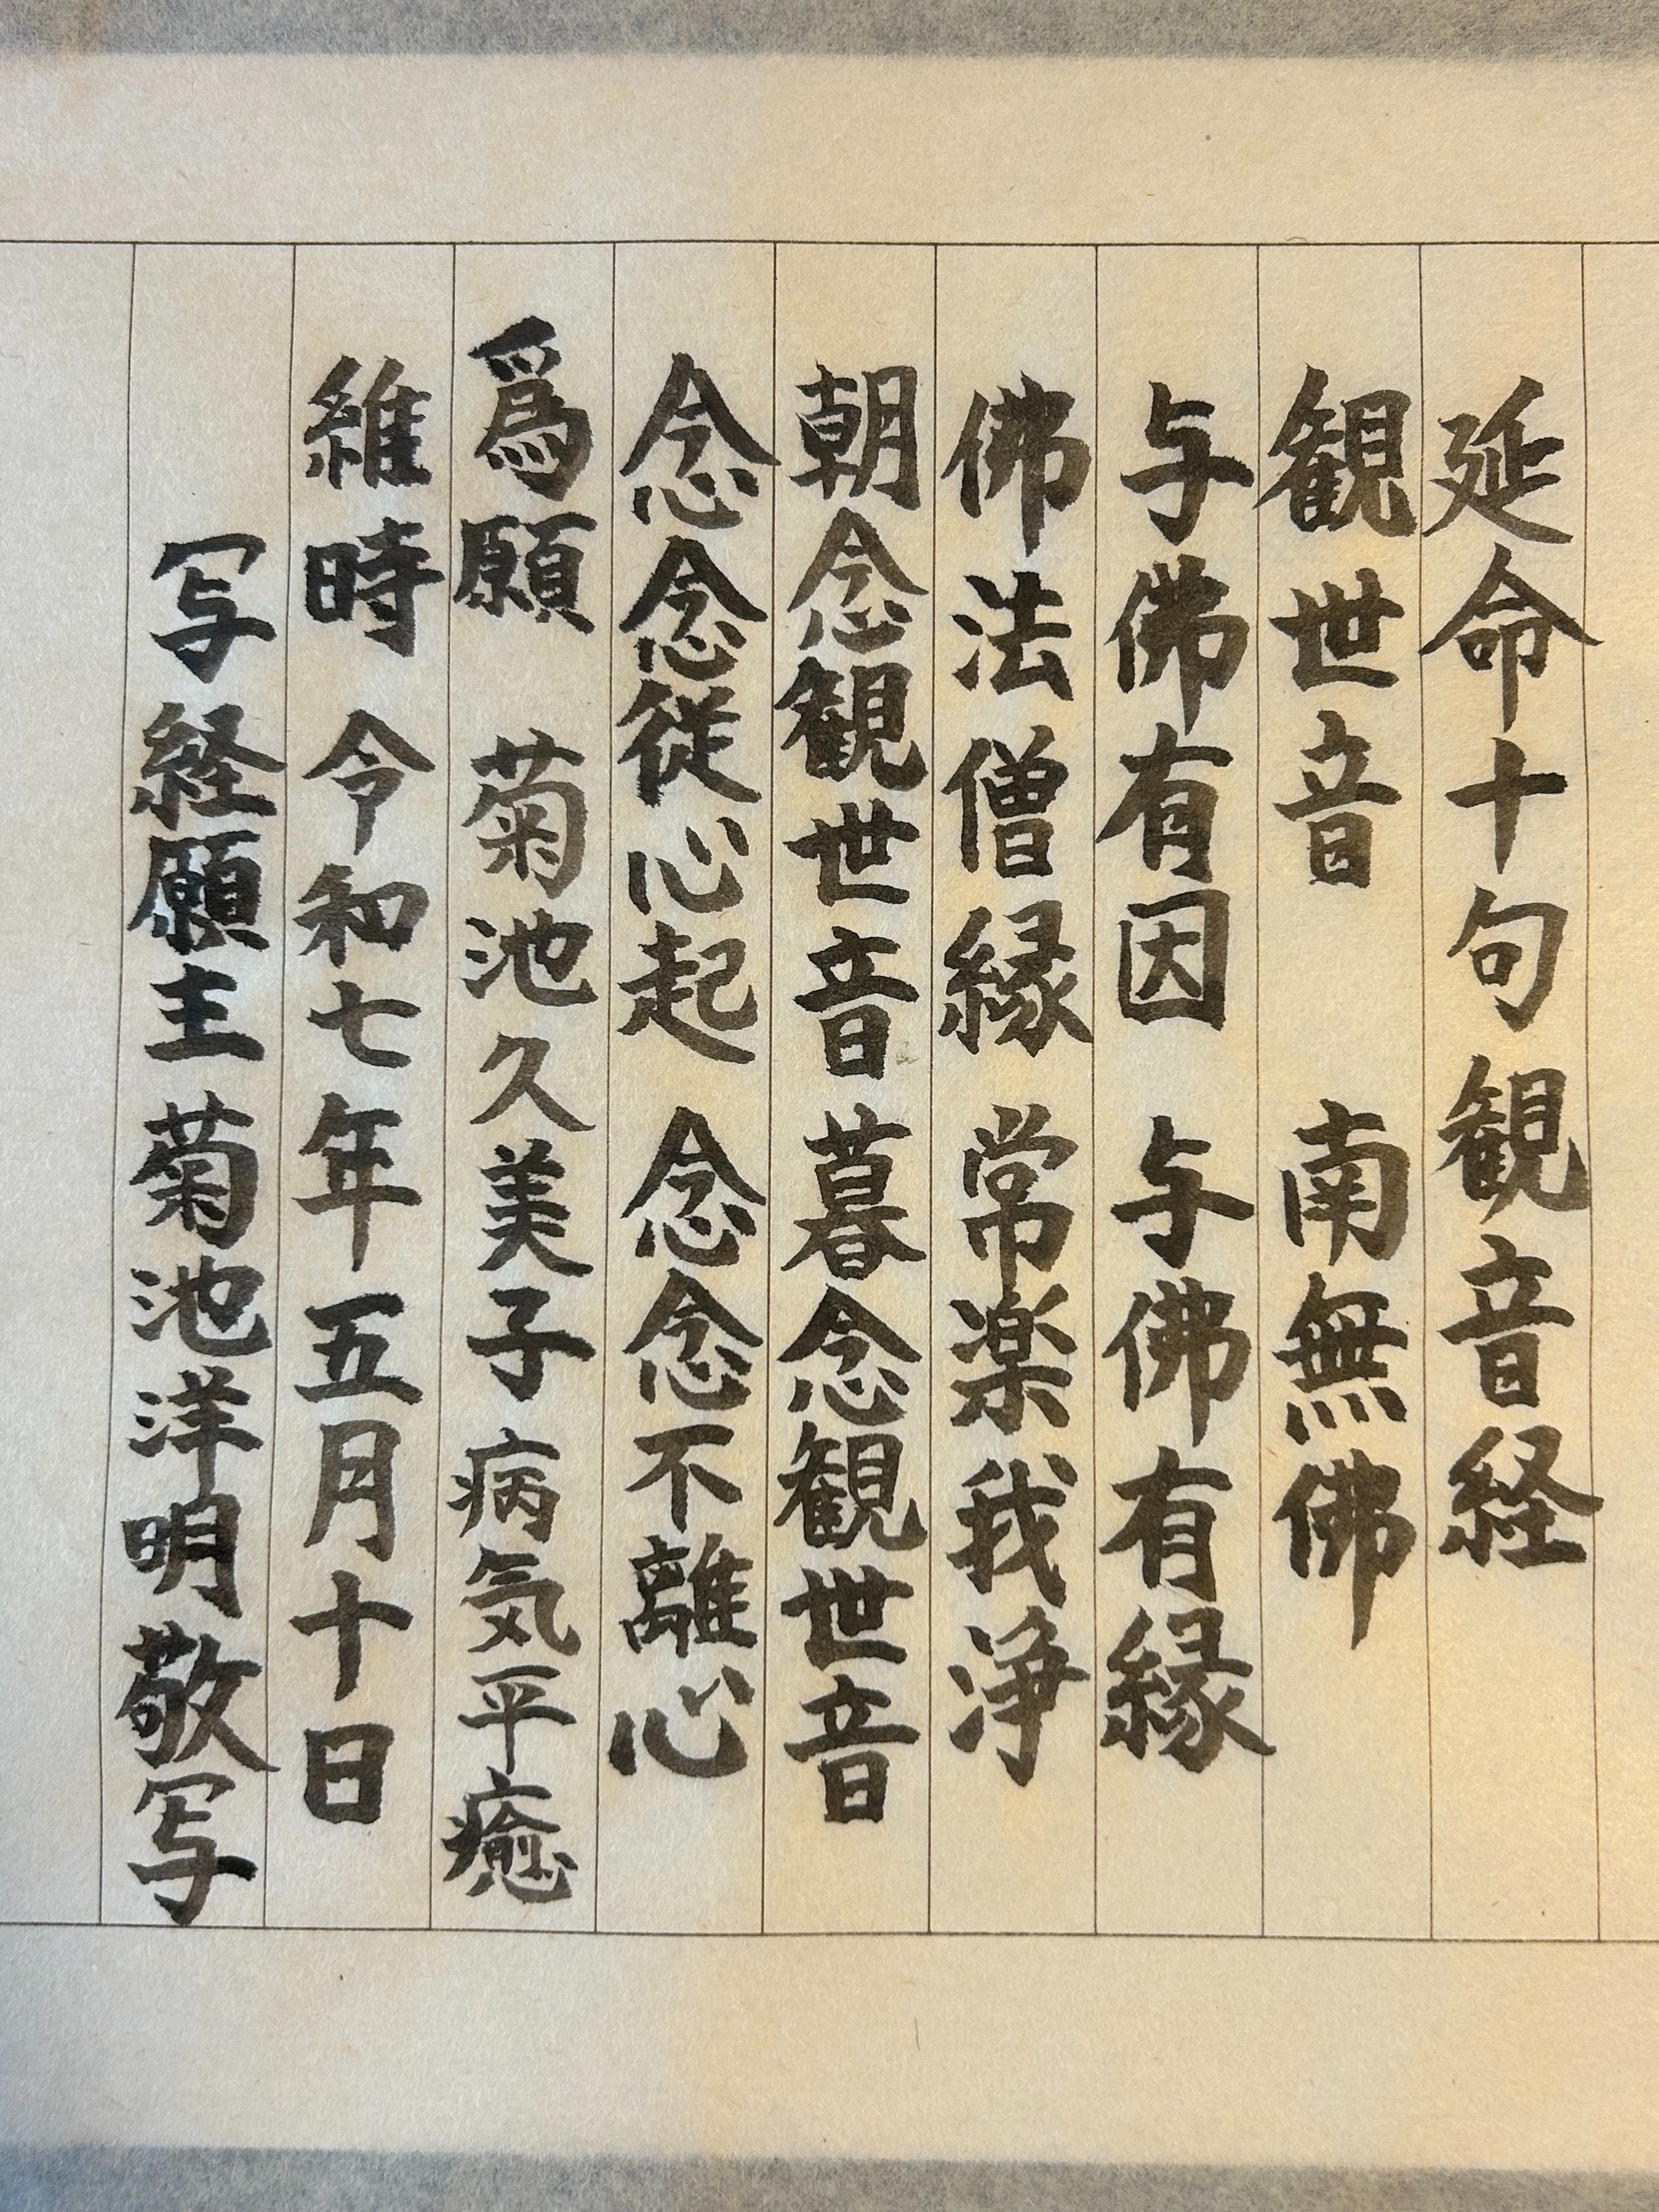 延命十句観音経
観世音　南無佛
与佛有因　与佛有縁
佛法僧縁　常楽我浄
朝念観世音　暮念観世音
念念従心起　念念不離心
爲願　菊池久美子　病気平癒
維時　令和七年五月十日
写経願主　菊池洋明　敬写